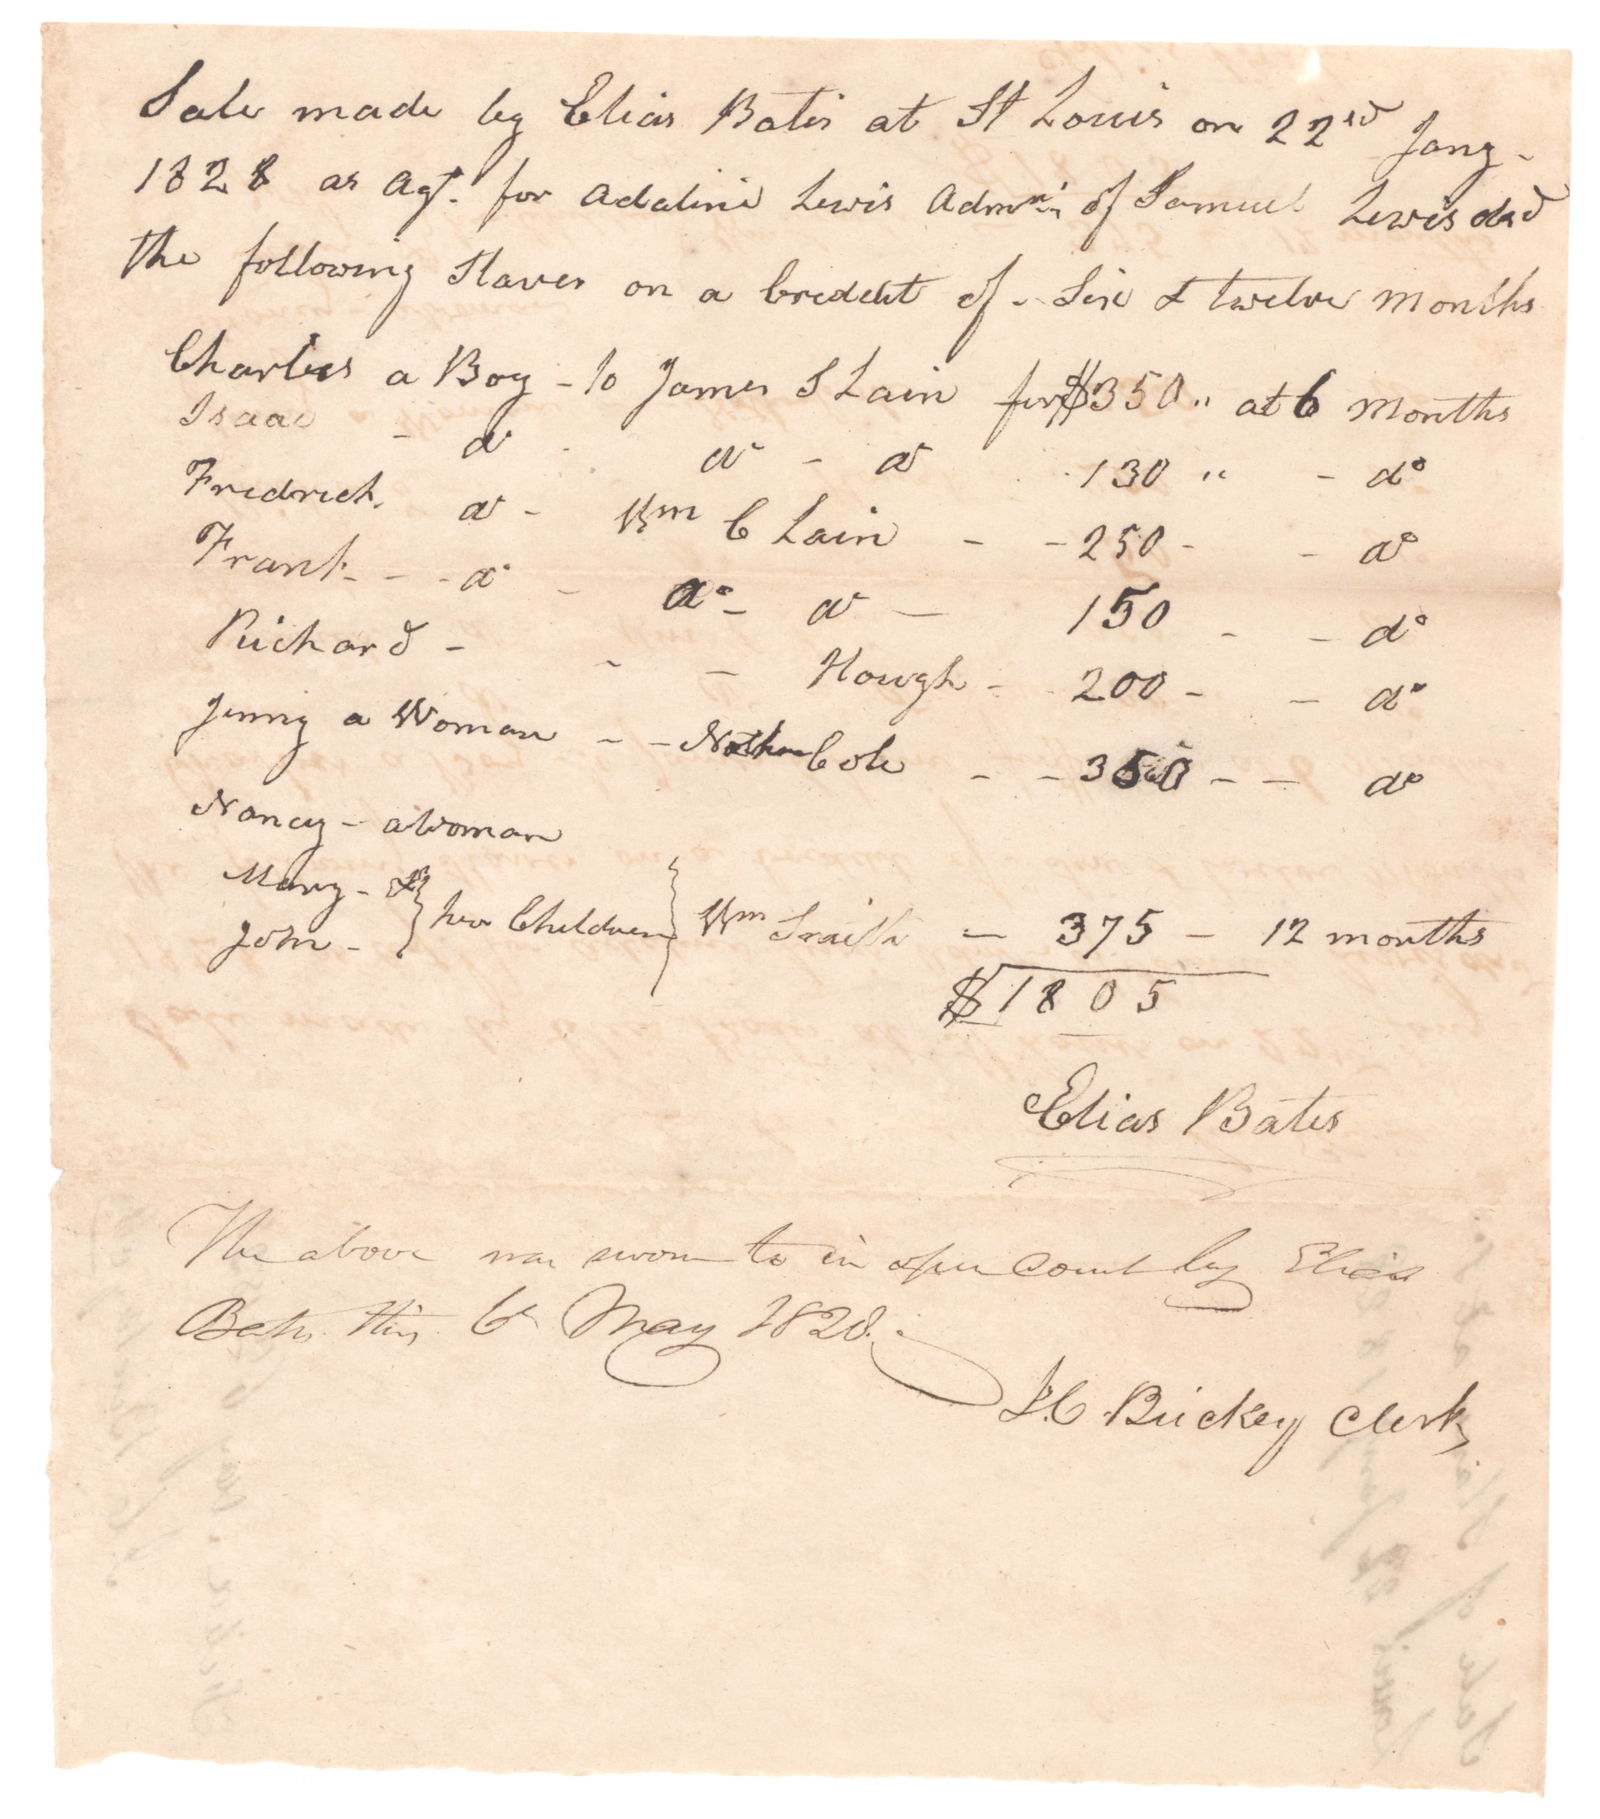 Sale made by Elias Bates at St Louis on 22nd Jany -
1828 as Agt. for Adaline Lewis Admrx of Samuel Lewis decd
the following Slaves on a Creddit of - Six & twelve months
Charles a Boy - to James S Lain for $350 " at 6 months
Isaac - do do - do 130 " - do
Fredrick do - Wm C Lain - - 250 - - do
Frank - - - do - do - do - 150 - - do
Richard - - - Hough - 200 - - do
Jenny a Woman - - Nathan Cole - - 350 - - do
Nancy - a Woman
Mary - } her Children } Wm - 375 - 12 months
John -
$1805
Elias Bates
The above was sworn to in open Court by Elias
Bates this 6th May 1828. -
Brickey Clerk